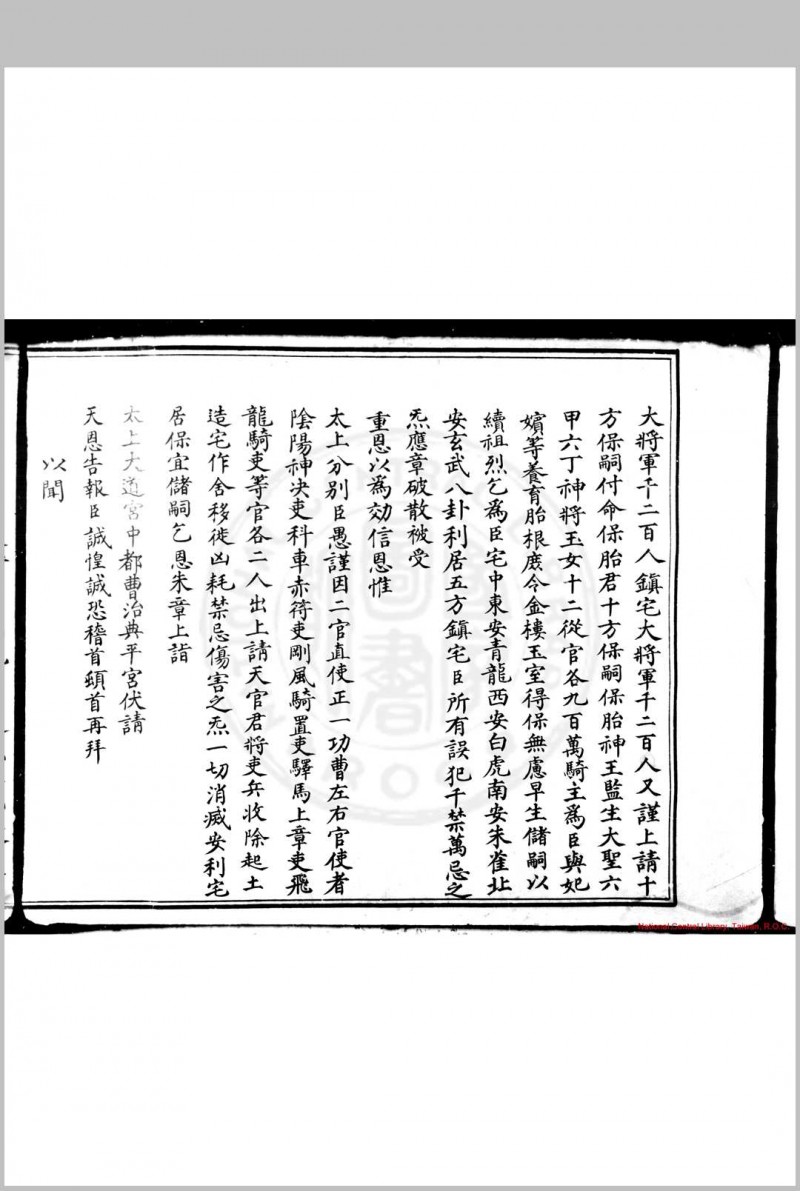 大將軍千二百人鎮宅大將軍千二百人又謹上請十
方保嗣付命保胎君十方保嗣保胎神王監生大聖六
甲六丁神將玉女十二從官各九百萬騎主為臣與妃
嬪等養育胎根庻令金樓玉室得保無慮早生儲嗣以
續祖烈乞為臣宅中東安青龍西安白虎南安朱雀北
安玄武八卦利居五方鎮宅臣所有誤犯千禁萬忌之
炁應章破散被受
重恩以為効信恩惟
太上分別臣愚謹因二官直使正一功曹左右官使者
陰陽神决吏科車赤符吏剛風騎置吏驛馬上章吏飛
龍騎吏等官各二人出上請天官君將吏兵收除起土
造宅作舍移徙凶耗禁忌傷害之炁一切消滅安利宅
居保宜儲嗣乞恩朱章上詣
太上大道宮中都曹治典平宮伏請
天恩告報臣誠惶誠恐稽首頓首再拜
以聞
National Central Library, Taiwan, R.O.C.